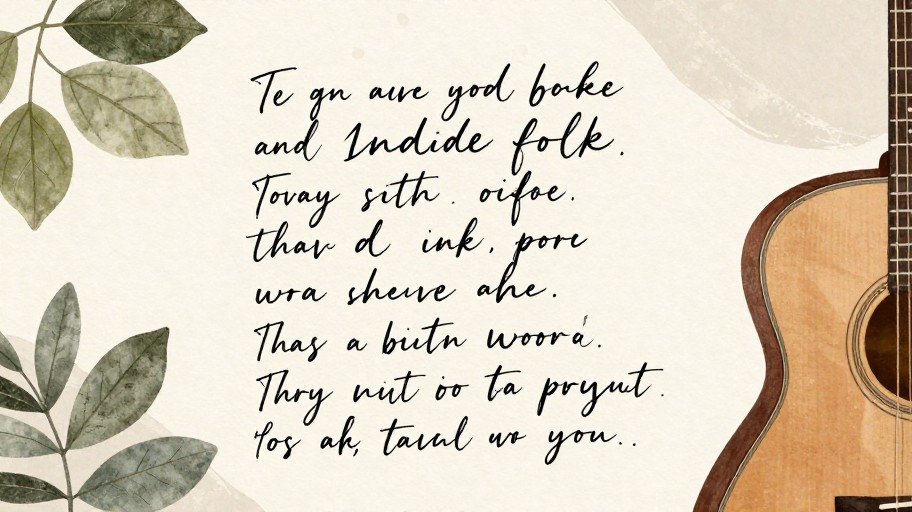 Te gn aure yod boke
and Indide folk.
Tovay sith. oifoe.
thav d ink, pore
wra sheure ahe.
Thas a biitn woora.
Thry niit oo ta pryut.
Yos ak, taul wo you..